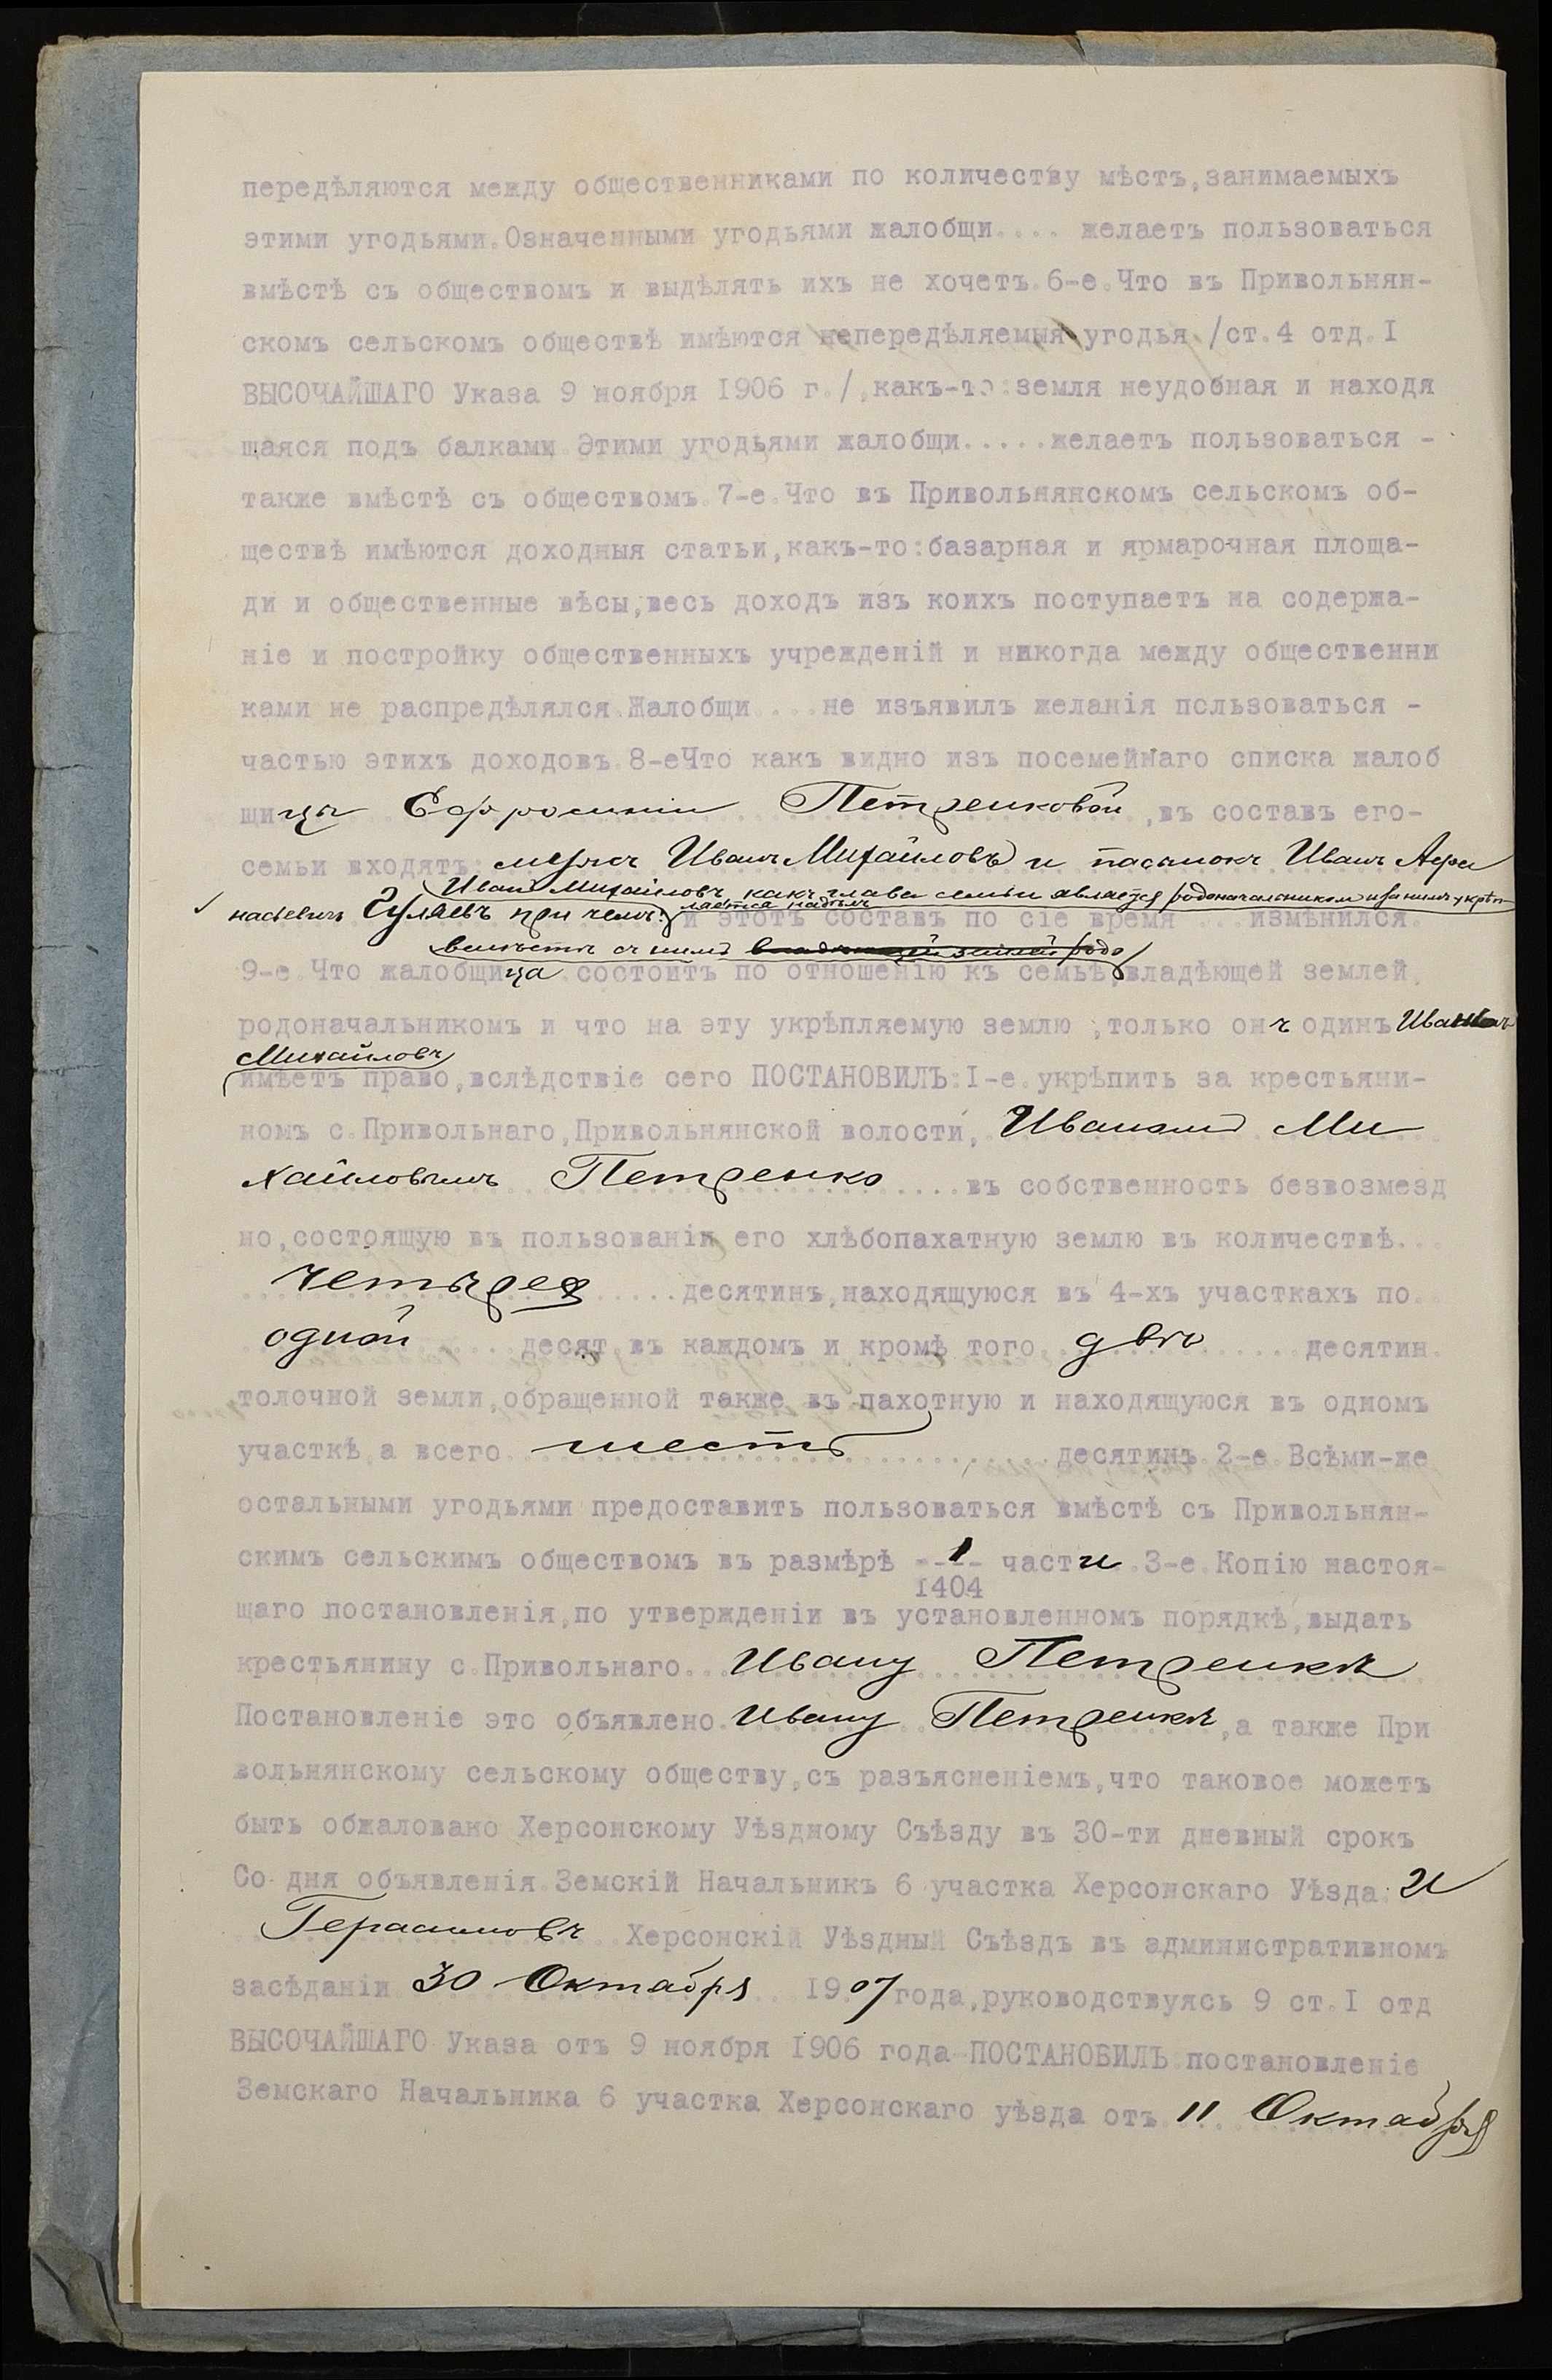 передѣляются между общественниками по количеству мѣстъ,занимаемыхъ
этими угодьями.Означенными угодьями жалобщи.... желаетъ пользоваться
вмѣстѣ съ обществомъ и выдѣлять ихъ не хочетъ.6-е.Что въ Привольнян-
скомъ сельскомъ обществѣ имѣются непередѣляемыя угодья /ст.4 отд.I
ВЫСОЧАЙШАГО Указа 9 ноября 1906 г./,какъ-то:земля неудобная и находя
щаяся подъ балками Этими угодьями жалобщи.....желаетъ пользоваться -
также вмѣстѣ съ обществомъ.7-е.Что въ Привольнянскомъ сельскомъ об-
ществѣ имѣются доходныя статьи,какъ-то:базарная и ярмарочная площа-
ди и общественные вѣсы,весь доходъ изъ коихъ поступаетъ на содержа-
ніе и постройку общественныхъ учрежденій и никогда между общественни
ками не распредѣлялся.Жалобщи....не изъявилъ желанія пользоваться -
частью этихъ доходовъ.8-еЧто какъ видно изъ посемейнаго списка жалоб
щицы Ефросиніи Петренковой ,въ составъ его-
семьи входятъ: мужъ Иванъ Михайловъ и пасынокъ Иванъ Афа
Иванъ Михайловъ какъ глава семьи является родоначальникомъ и за нимъ укрѣп
ляется надѣлъ
насьевъ Гуляевъ при чемъ: и этотъ составъ по сіе время ...измѣнился.
вмѣстѣ съ нимъ
9-е.Что жалобщица состоитъ по отношенію къ семьѣ,владѣющей землей,
родоначальникомъ и что на эту укрѣпляемую землю ,только онъ одинъ Иванъ
Михайловъ
имѣетъ право,вслѣдствіе сего ПОСТАНОВИЛЪ:I-е.укрѣпить за крестьяни-
номъ с.Привольнаго,Привольнянской волости, Иваномъ Ми
хайловымъ Петренко ....въ собственность безвозмезд
но,состоящую въ пользованіи его хлѣбопахатную землю въ количествѣ...
четырех .....десятинъ,находящуюся въ 4-хъ участкахъ по.
одной ....десят.въ каждомъ и кромѣ того двѣ ....десятин.
толочной земли,обращенной также въ пахотную и находящуюся въ одномъ
участкѣ,а всего шесть ....десятинъ.2-е.Всѣми-же
остальными угодьями предоставить пользоваться вмѣстѣ съ Привольнян-
скимъ сельскимъ обществомъ въ размѣрѣ 1 части.3-е.Копію настоя-
1404
щаго постановленія,по утвержденіи въ установленномъ порядкѣ,выдать
крестьянину с.Привольнаго... Ивану Петренкѣ
Постановленіе это объявлено.Ивану Петренкѣ,а также При
вольнянскому сельскому обществу,съ разъясненіемъ,что таковое можетъ
быть обжаловано Херсонскому Уѣздному Съѣзду въ 30-ти дневный срокъ
Со дня объявленія.Земскій Начальникъ 6 участка Херсонскаго Уѣзда: И
Герасимовъ Херсонскій Уѣздный Съѣздъ въ административномъ
засѣданіи 30 Октября 1907 года,руководствуясь 9 ст.I отд
ВЫСОЧАЙШАГО Указа отъ 9 ноября 1906 года ПОСТАНОВИЛЪ:постановленіе
Земскаго Начальника 6 участка Херсонскаго уѣзда отъ 11 Октября